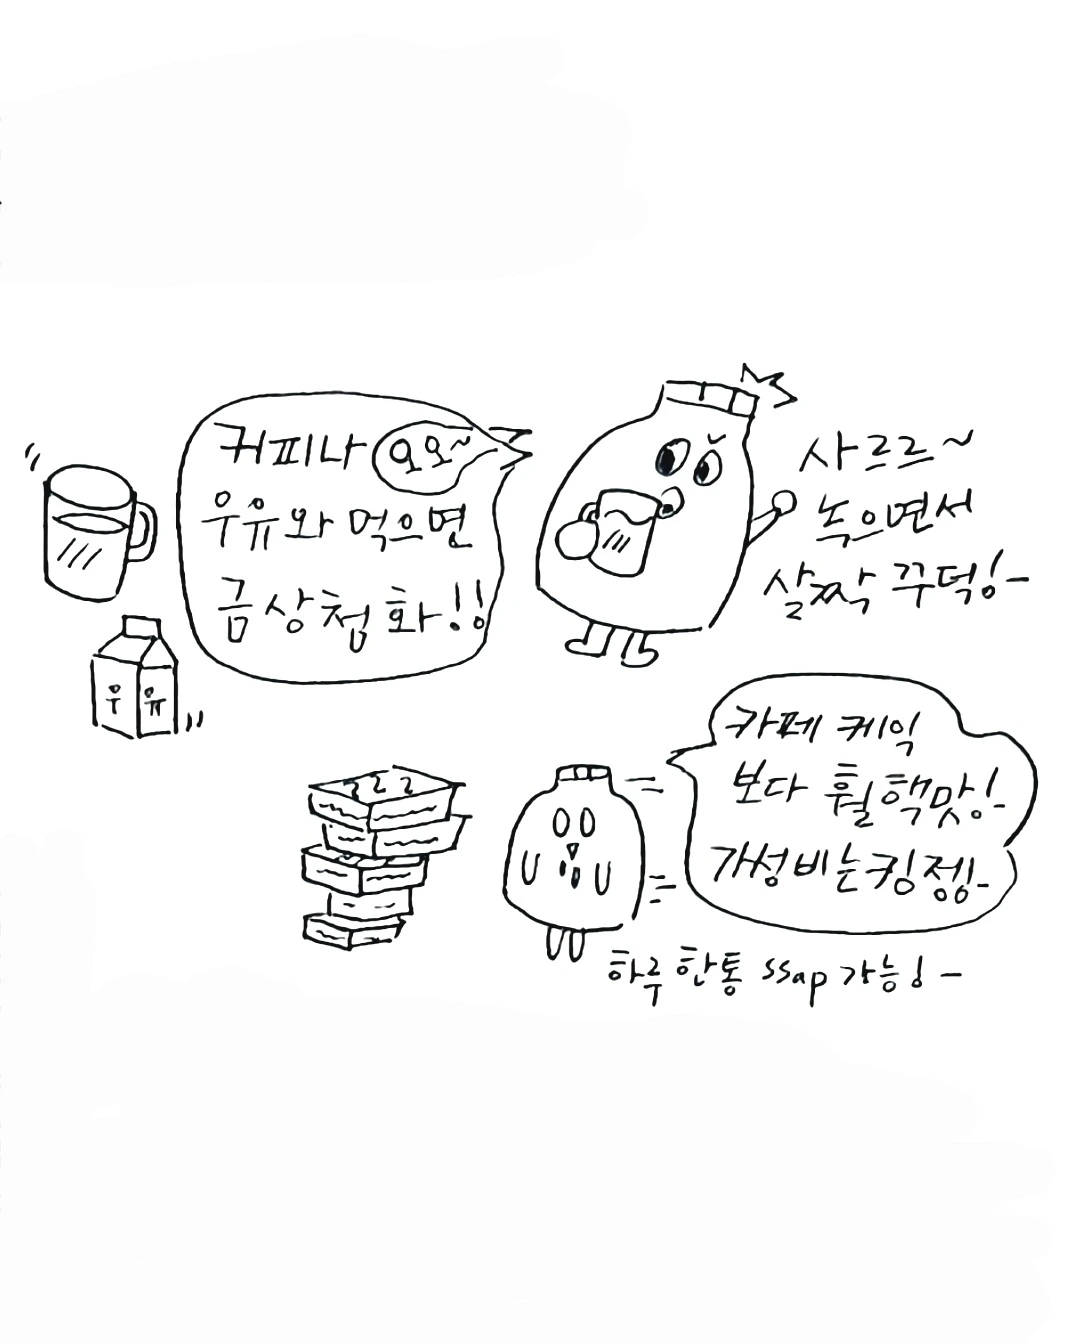 커피나
오오~
우유와 먹으면
금상첨화!!
사르르~
녹으면서
살짝 꾸덕!-
우유
카페 케익
보다 훨 핵맛!-
가성비는킹젱!-
하루 한통 ssap 가능!-